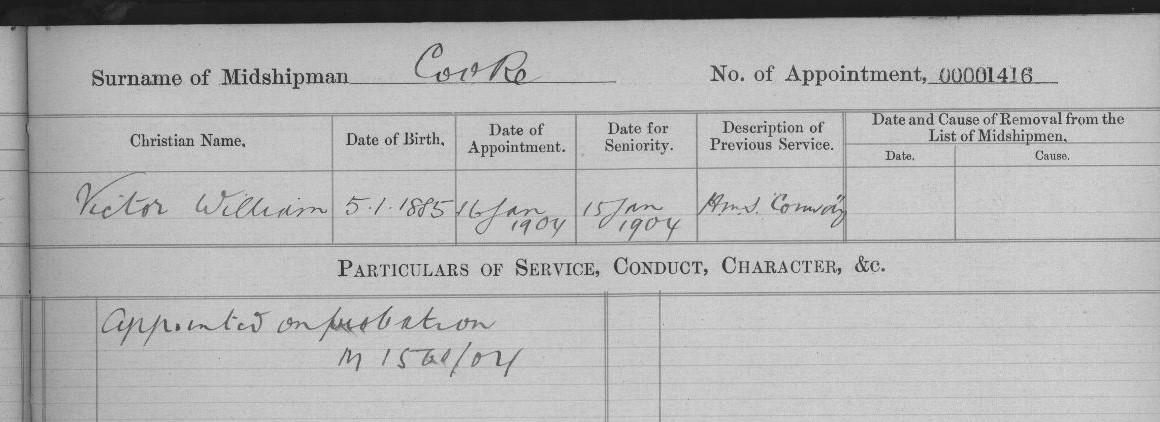 Surname of Midshipman Cooke No. of Appointment, 00001416
Christian Name, Date of Birth, Date of Appointment. Date for Seniority. Description of Previous Service. Date and Cause of Removal from the List of Midshipmen,
Date. Cause.
Victor William 5.1.1885 16 Jan 1904 15 Jan 1904 H.M.S. Conway
PARTICULARS OF SERVICE, CONDUCT, CHARACTER, &c.
Appointed on probation
M /04